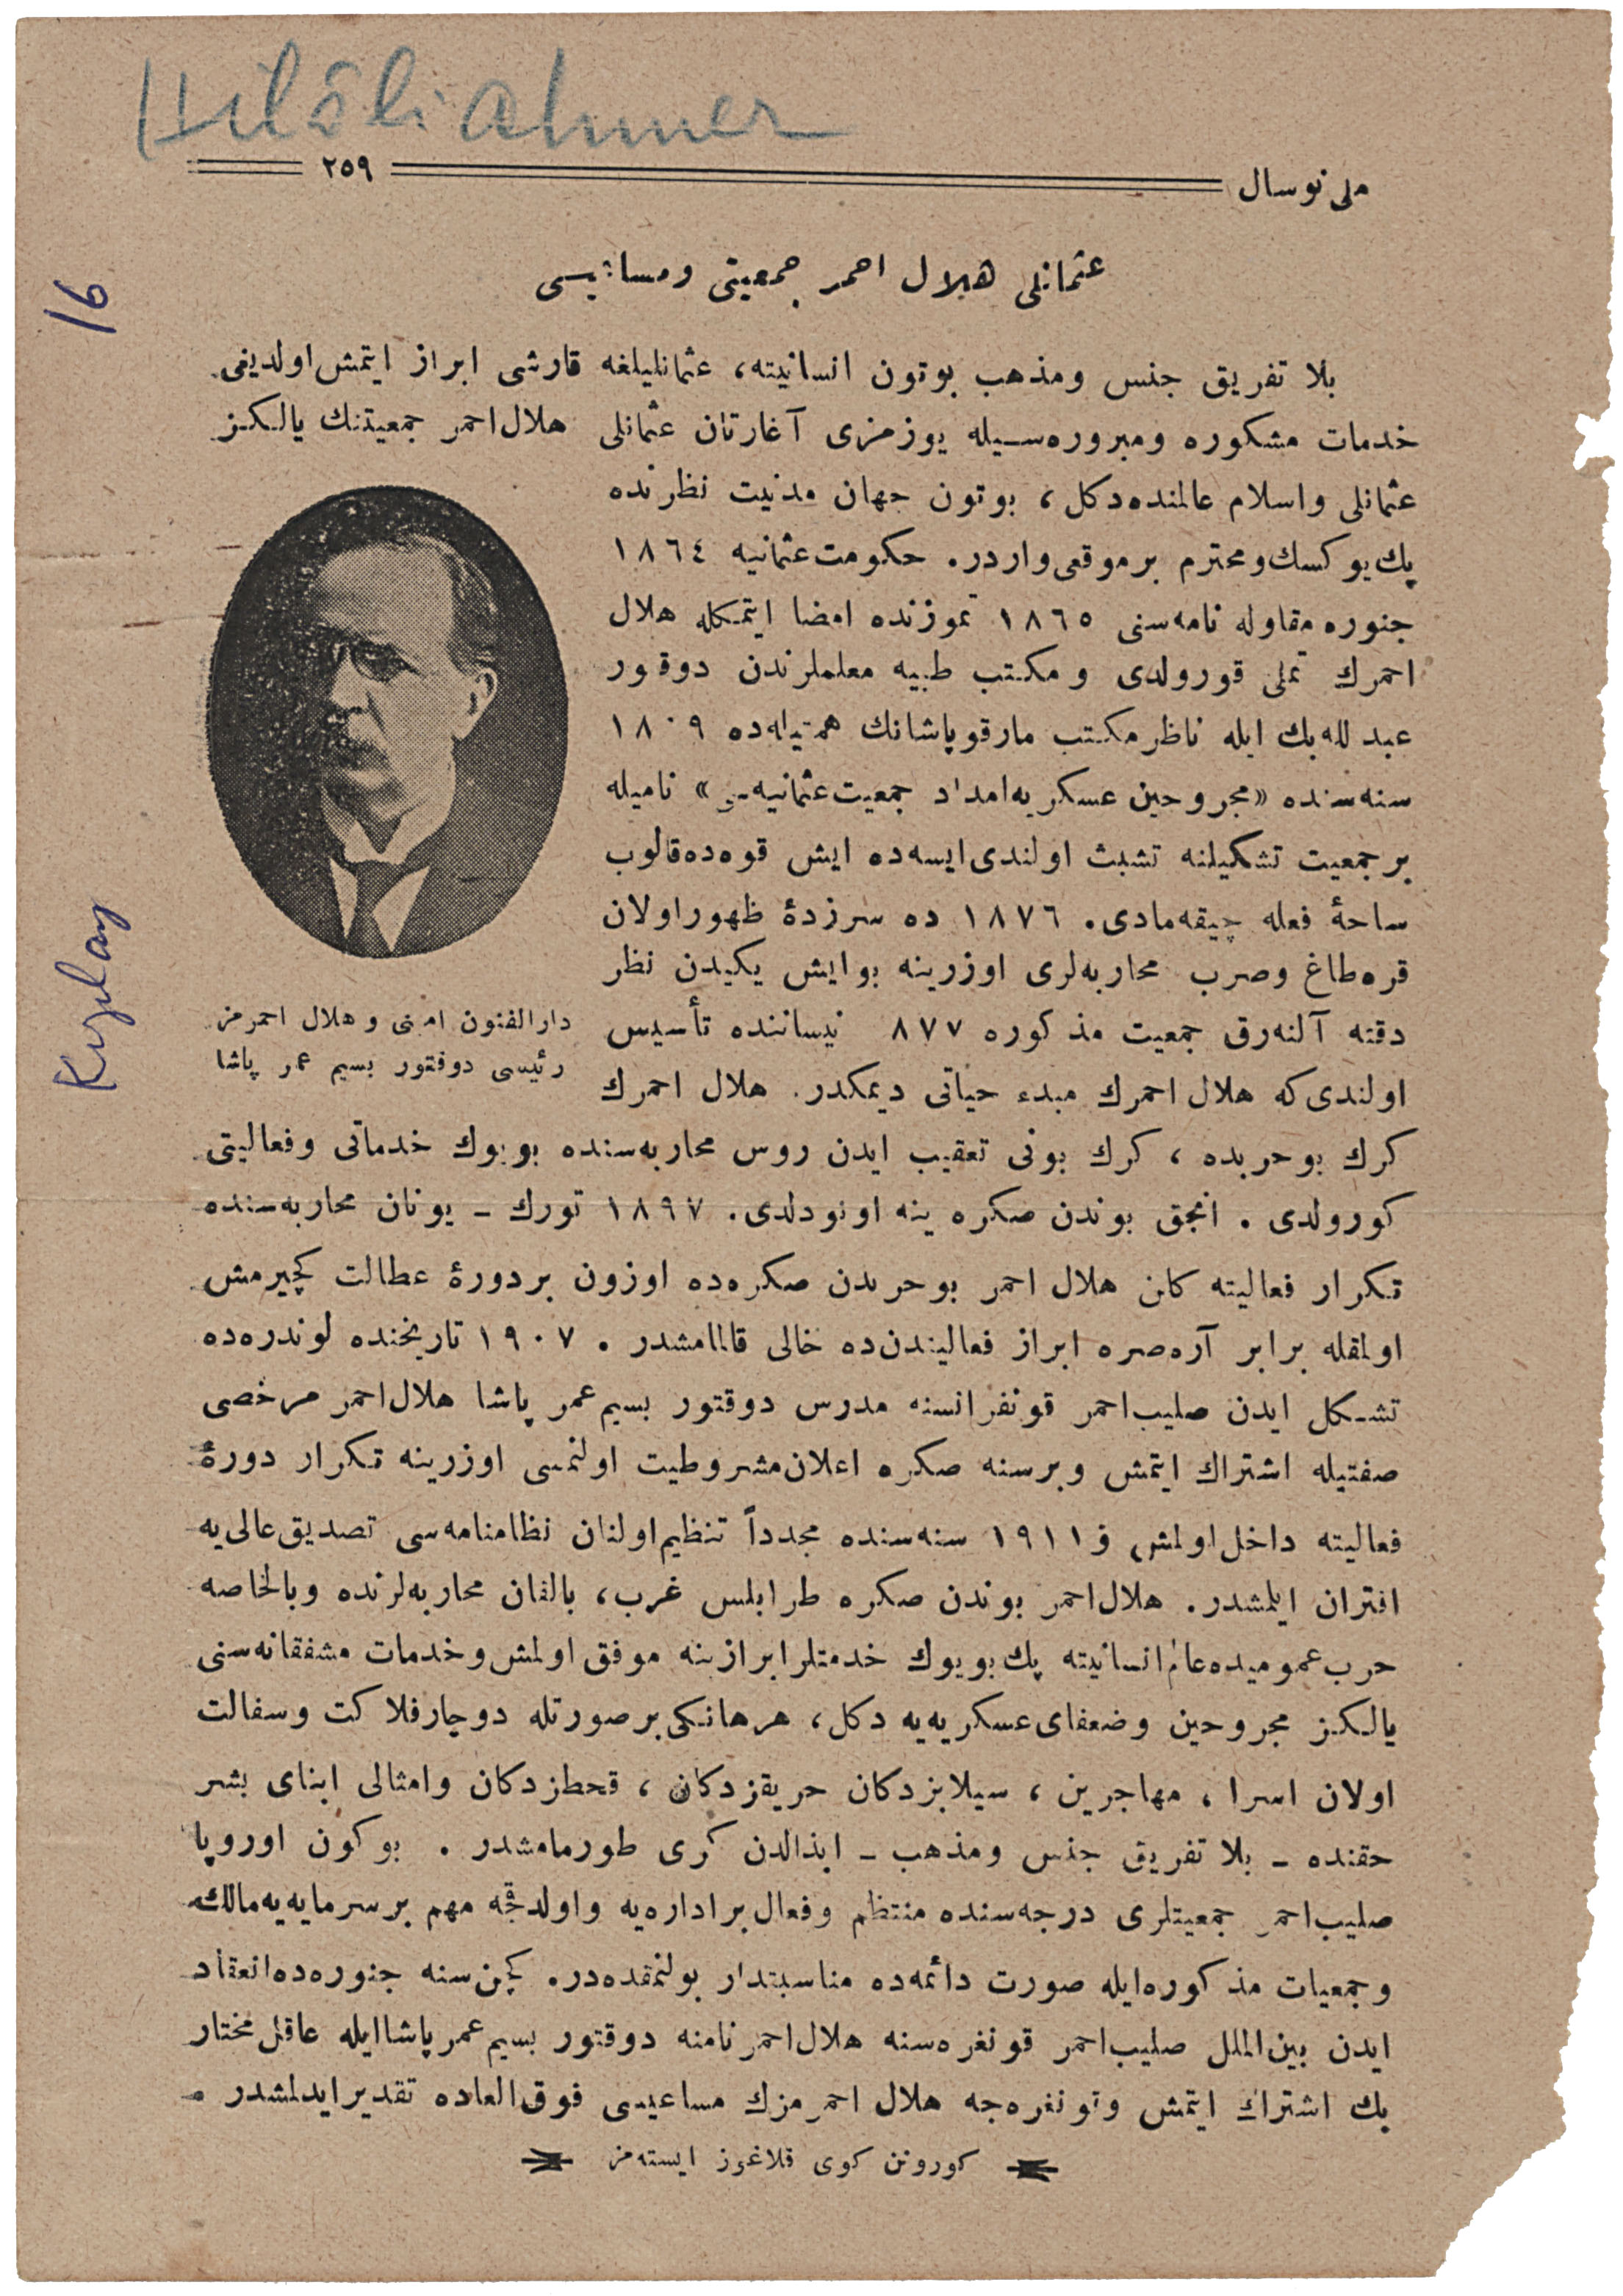 Hilâli ahmer
ملی نوسال ٢٥٩
عثمانلی هلال احمر جمعیتی ومساعیسی
16
بلا تفریق جنس ومذهب بوتون انسانیته، عثمانلیلغه قارشی ابراز ایتمش اولدیغی
خدمات مشکوره ومبروره‌سیله یوزمزی آغارتان عثمانلی هلال احمر جمعیتنك یالکز
عثمانلی واسلام عالمنده دکل، بوتون جهان مدنیت نظرنده
پك یوکسك ومحترم برموقعی واردر. حکومت عثمانیه ١٨٦٤
جنوره مقاوله نامه‌سنی ١٨٦٥ تموزنده امضا ایتمکله هلال
احمرك تملی قورولدی ومکتب طبیه معلملرندن دوقتور
عبدلله بك ایله ناظر مکتب مارقو پاشانك همتیله ده ١٨٠٩
سنه‌سنده «مجروحین عسکریه امداد جمعیت عثمانیه‌سی» نامیله
برجمعیت تشکیلنه تشبث اولندی ایسه‌ده ایش قوه‌ده قالوب
ساحهٔ فعله چیقه‌مادی. ١٨٧٦ ده سرزدهٔ ظهور اولان
قره‌طاغ وصرب محاربه‌لری اوزرینه بوایش یکیدن نظر
دقته آلنه‌رق جمعیت مذکوره ٨٧٧ نیساننده تأسیس
اولندی که هلال احمرك مبدء حیاتی دیمکدر. هلال احمرك
دارالفنون امینی و هلال احمرمز
رئیسی دوقتور بسیم عمر پاشا
Kızılay
کرك بوحربده، کرك بونی تعقیب ایدن روس محاربه‌سنده بویوك خدماتی وفعالیتی
کورولدی. انجق بوندن صکره ینه اونودلدی. ١٨٩٧ تورك ـ یونان محاربه‌سنده
تکرار فعالیته کلن هلال احمر بوحربدن صکره‌ده اوزون بردورهٔ عطالت کچیرمش
اولمقله برابر آره‌صره ابراز فعالیتدن ده خالی قالمامشدر. ١٩٠٧ تاریخنده لوندره‌ده
تشکل ایدن صلیب احمر قونفرانسنه مدرس دوقتور بسیم عمر پاشا هلال احمر مرخصی
صفتیله اشتراك ایتمش وبرسنه صکره اعلان مشروطیت اولنمسی اوزرینه تکرار دورهٔ
فعالیته داخل اولمش و ١٩١١ سنه‌سنده مجدداً تنظیم اولنان نظامنامه‌سی تصدیق عالی‌یه
اقتران ایلمشدر. هلال احمر بوندن صکره طرابلس غرب، بالقان محاربه‌لرنده وبالخاصه
حرب عمومیده عالم انسانیته پك بویوك خدمتلر ابرازینه موفق اولمش وخدمات مشفقانه‌سنی
یالکز مجروحین وضعفای عسکریه‌یه دکل، هرهانکی برصورتله دوچار فلاکت وسفالت
اولان اسرا، مهاجرین، سیلابزدکان حریقزدکان، قحطزدکان وامثالی ابنای بشر
حقنده ـ بلا تفریق جنس ومذهب ـ ابذالدن کری طورمامشدر. بوکون اوروپا
صلیب احمر جمعیتلری درجه‌سنده منتظم وفعال براداره‌یه واولدقجه مهم برسرمایه‌یه مالك
وجمعیات مذکوره ایله صورت دائمه‌ده مناسبتدار بولنمقده‌در. کچن سنه جنوره‌ده انعقاد
ایدن بین‌الملل صلیب احمر قونغره‌سنه هلال احمر نامنه دوقتور بسیم عمر پاشا ایله عاقل مختار
بك اشتراك ایتمش وقونغره‌جه هلال احمرمزك مساعیسی فوق‌العاده تقدیر ایدلمشدر
کورونن کوی قلاغوز ایسته‌مز